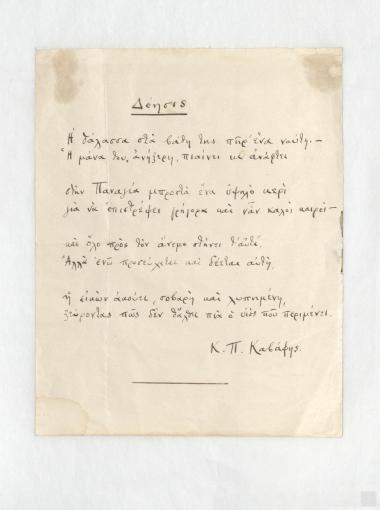 Δέησις
Η θάλασσα στα βάθη της πήρ' ένα ναύτη. —
Η μάνα του, ανήξερη, πιαίνει κι ανάφτει
στην Παναγία μπροστά ένα υψηλό κερί
για να επιστρέψει γρήγορα και νάν' καλοί καιροί —
και όλο προς τον άνεμο στήνει τ' αυτί.
Αλλά ενώ προσεύχεται και δέεται αυτή,
η εικών ακούει, σοβαρή και λυπημένη,
ξεύροντας πως δεν θάλθει πια ο υιός που περιμένει.
Κ. Π. Καβάφης.